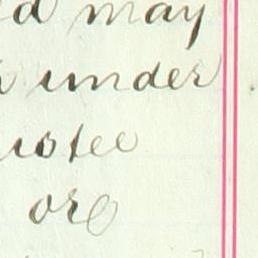 d may
under
ustee
org